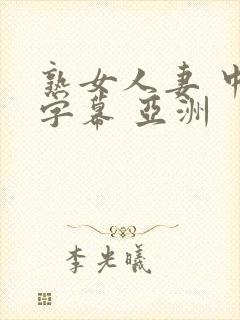 熟女人妻 中
字幕 亞洲
李光曦